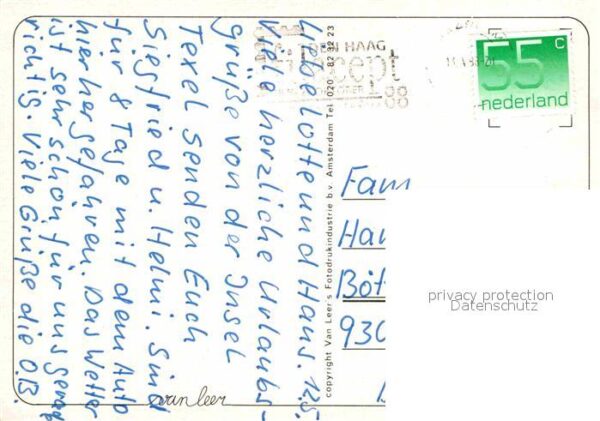 Liebe Lotte und Hans. 12.5.
Viele herzliche Urlaubs-
grüße von der Insel
Texel senden Euch
Siegfried u. Helmi. Sind
für 8 Tage mit dem Auto
hierher gefahren. Das Wetter
ist sehr schön für uns gerade
richtig. Viele Grüße die O.B.
DEN HAAG
88
55 c
nederland
copyright Van Leer's Fotodrukindustrie b.v. Amsterdam Tel. 020
Fam
Han
Böt
930
privacy protection
Datenschutz
van leer